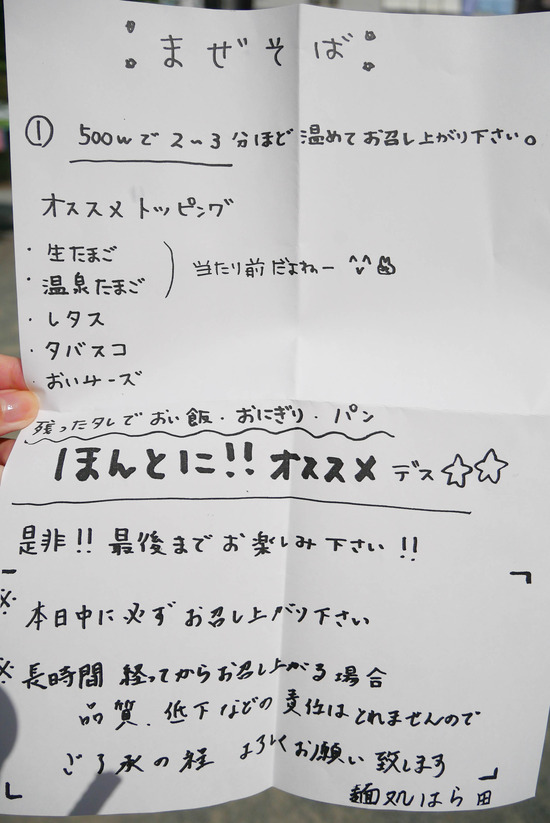 まぜそば
① 500wで2〜3分ほど温めてお召し上がり下さい。
オススメトッピング
・生たまご
・温泉たまご
当たり前だよねー ^^
・レタス
・タバスコ
・おいしチーズ
残ったタレでおい飯・おにぎり・パン
ほんとに!! オススメ デス☆☆
是非!! 最後までお楽しみ下さい!!
※本日中に必ずお召し上がり下さい
※長時間 経ってからお召し上がる場合
品質、低下などの責任はとれませんので
ご了承の程 よろしくお願い致します
麺処はら田